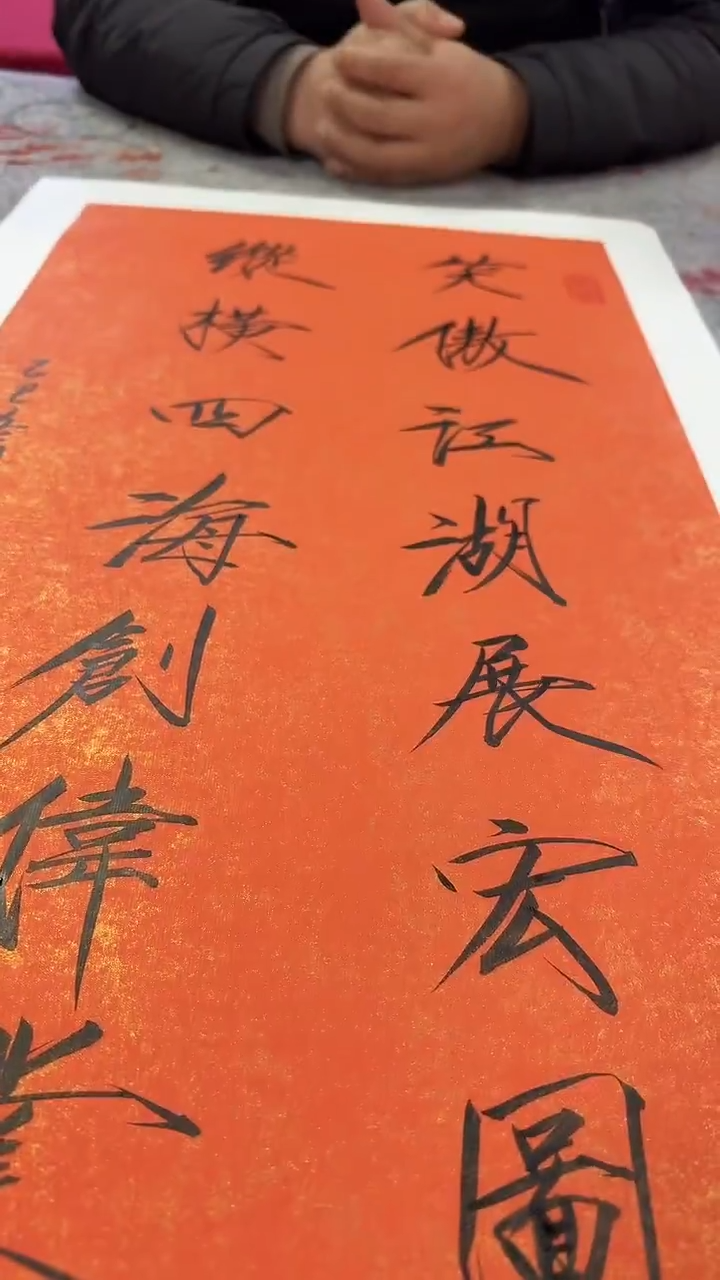 笑傲江湖展宏圖
縱橫四海創偉業
乙巳